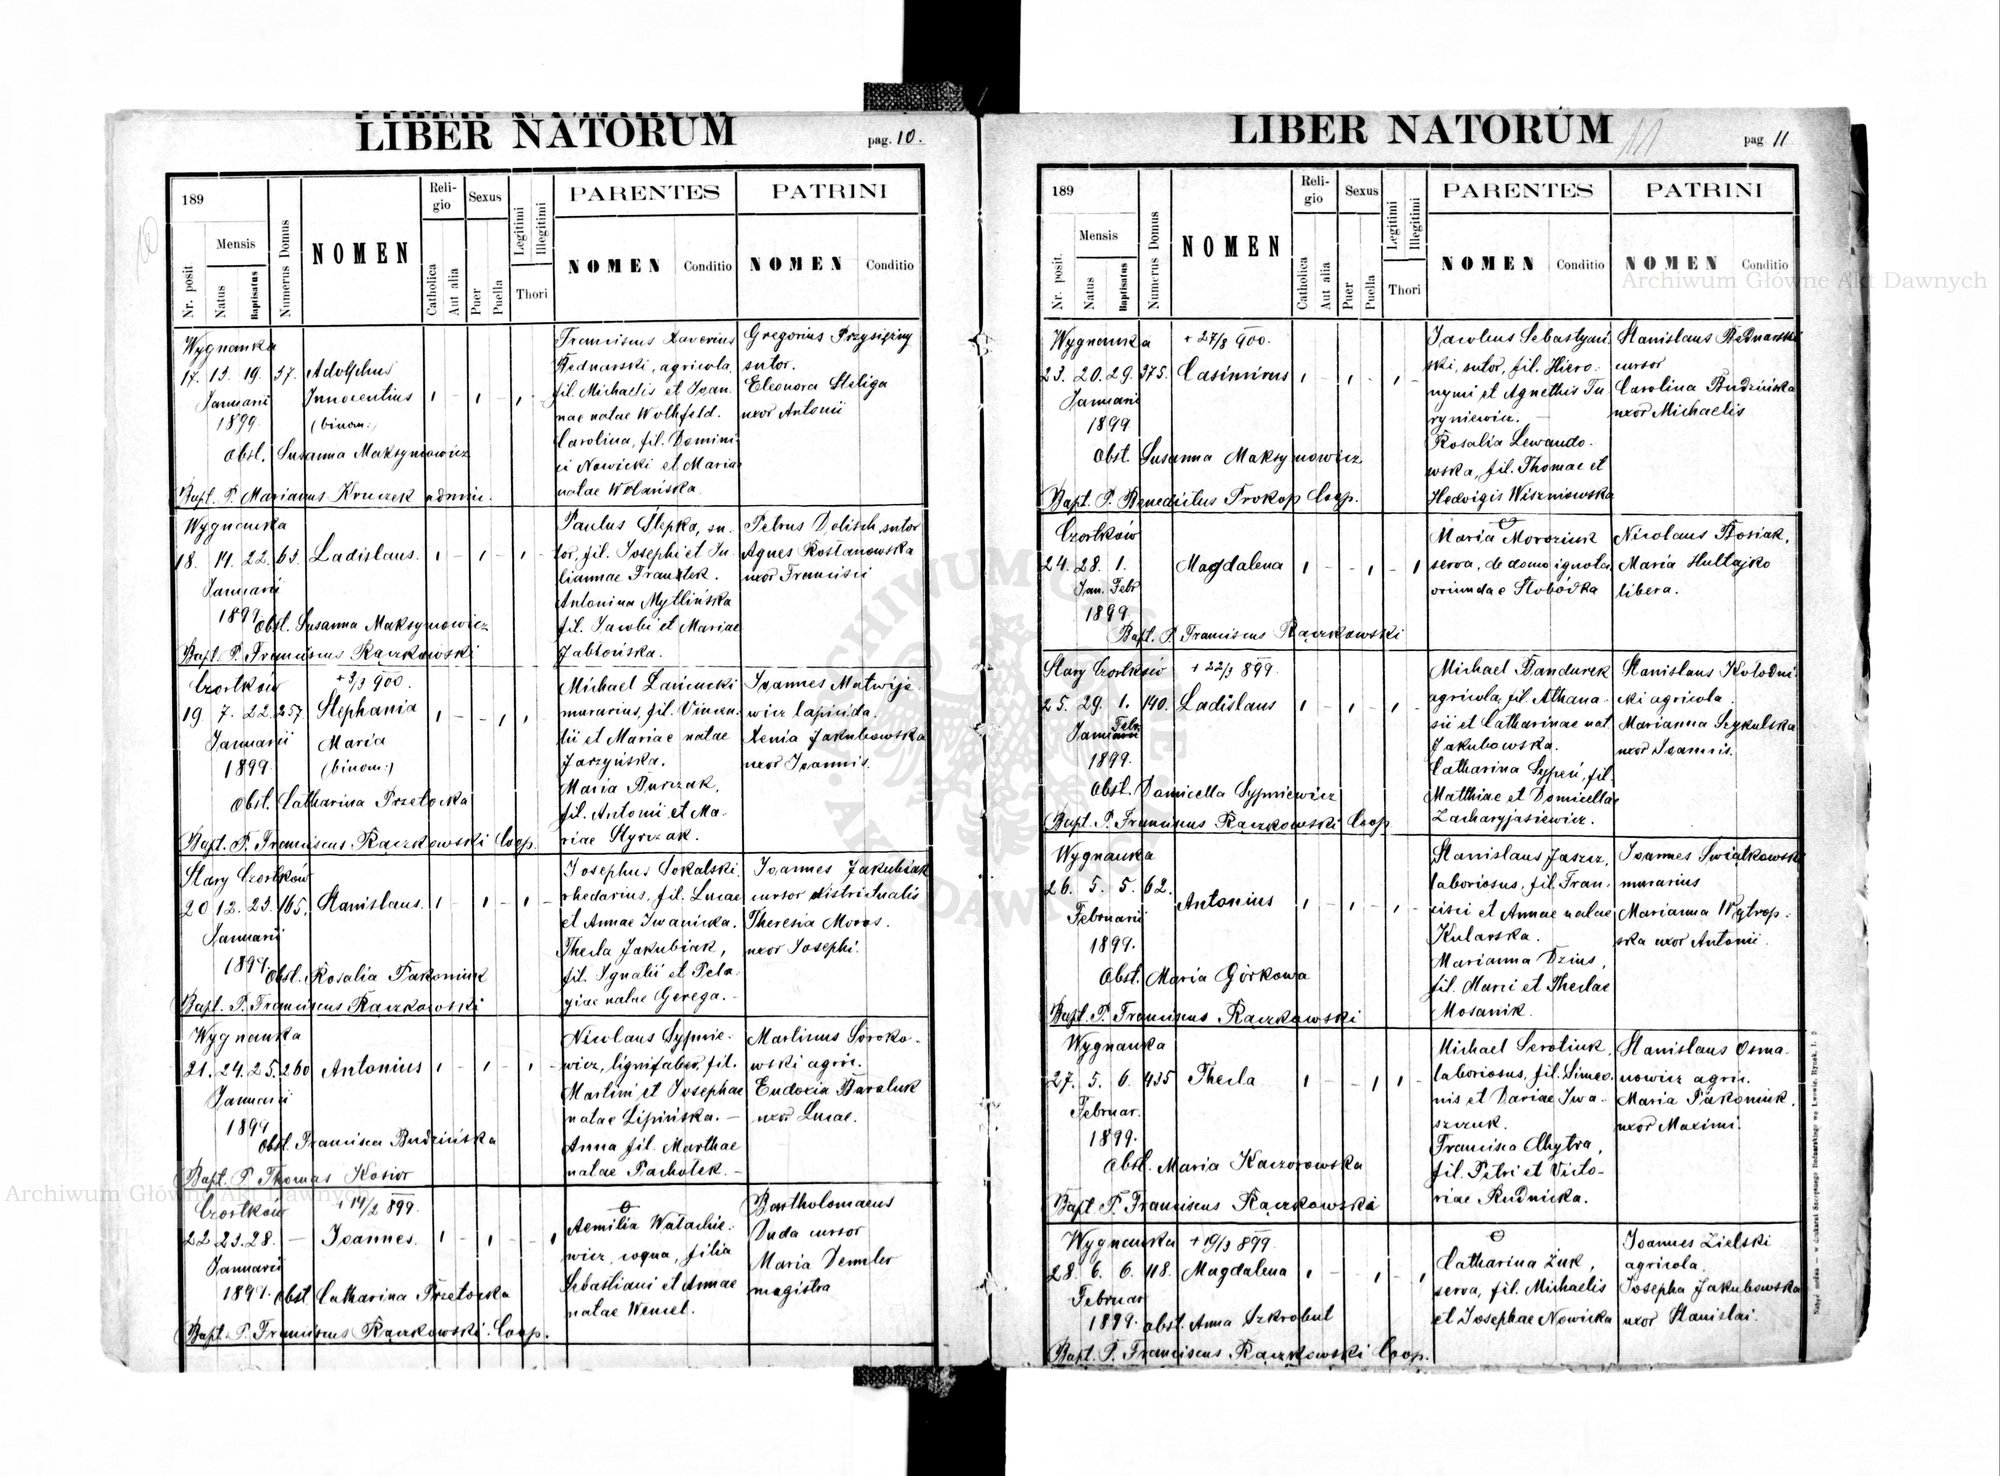 LIBER NATORUM
pag. 10.
189
Mensis
Nr. posit.
Natus
Baptisatus
Numerus Domus
NOMEN
Religio
Catholica
Aut alia
Sexus
Puer
Puella
Legitimi
Illegitimi
Thori
PARENTES
NOMEN
Conditio
PATRINI
NOMEN
Conditio
Wygnanka
17. 13. 19. 37. Adolphus
Januarii Innocentius
1899. (binom:)
Obst. Susanna Maksymowicz
Bapt. P. Marianus Kruczek
Franciscus Xaverius
Bednarski, agricola,
fil. Michaelis et Joan-
nae natae Wohlfeld.
Carolina, fil. Domini-
ci Nowicki et Mariae
natae Wolańska.
Gregorius Przysiężny
sutor.
Eleonora Steliga
uxor Antonii
Wygnanka
18. 14. 22. 63. Ladislaus.
Januarii
1899
Obst. Susanna Maksymowicz
Bapt. P. Franciscus Rączkowski
Paulus Slepka, su-
tor, fil. Josephi et Ju-
liannae
Antonina Mytlińska
fil. Jacobi et Mariae
Jabłońska.
Petrus Dolisch, sutor
Agnes Rostanowska
uxor Francisci
Czortków + 3/3 900.
19. 7. 22. 257. Stephania
Januarii Maria
1899. (binom:)
Obst. Catharina Przetocka
Bapt. P. Franciscus Rączkowski Coop.
Michael Łańcucki
murarius, fil. Vincen-
tii et Mariae natae
Jarzyńska.
Maria Burczak,
fil. Antonii et Ma-
riae Styrczak.
Joannes Matwije-
wicz lapicida.
Xenia Jakubowska
uxor Joannis.
Stary Czortków
20 12. 23. 165. Stanislaus.
Januarii
1899.
Obst. Rosalia Pakoniuk
Bapt. P. Franciscus Rączkowski
Josephus Sokalski
rhedarius, fil. Lucae
et Annae Iwanicka.
Thecla Jakubiak,
fil. Ignatii et Pela-
giae natae Gerega. -
Joannes Jakubiak
cursor districtualis
Theresia Moros.
uxor Josephi.
Wygnanka
21. 24. 25. 260 Antonius
Januarii
1899
Obst. Francisca Budzińska
Bapt. P. Thomas Kosior
Nicolaus Sypnie-
wicz, lignifaber, fil.
Martini et Josephae
natae Lipińska. -
Anna fil. Marthae
natae Pachołek. -
Martinus Soroko-
wski agric.
Eudoxia Baraluk
uxor Lucae.
Czortków + 14/2 899.
22 23. 28. - Joannes.
Januarii
1899. Obst. Catharina Przetocka
Bapt. P. Franciscus Rączkowski. Coop.
Aemilia Watachie-
wicz, coqua, filia
Sebastiani et Annae
natae Wencel.
Bartholomaeus
Duda cursor
Maria Demeler
magistra
LIBER NATORUM
11
pag. 11
189
Mensis
Nr. posit.
Natus
Baptisatus
Numerus Domus
NOMEN
Religio
Catholica
Aut alia
Sexus
Puer
Puella
Legitimi
Illegitimi
Thori
PARENTES
NOMEN
Conditio
PATRINI
NOMEN
Conditio
Wygnanka + 27/8 900.
23. 20. 29. 375. Casimirus
Januarii
1899
Obst. Susanna Maksymowicz
Bapt. P. Benedictus Prokop Coop.
Jacobus Sebastyań-
ski, sutor, fil. Hiero-
nymi et Agnethis Tu-
ryniewicz.
Rosalia Lewando-
wska, fil. Thomae et
Hedvigis Wiszniowska
Stanislaus Bednarski
cursor
Carolina Budzińska
uxor Michaelis
Czortków
24. 28. 1. Magdalena
Jan. Febr
1899.
Bapt. P. Franciscus Rączkowski
Maria Moroziuk
serva, de domo ignota,
oriundae Słobódka
Nicolaus Bosiak,
Maria Hultajko
libera.
Stary Czortków + 22/3 899.
25. 29. 1. 140. Ladislaus
Januarii Febr.
1899.
Obst. Domicella Sypniewicz
Bapt. P. Franciscus Rączkowski Coop
Michael Bandurek
agricola, fil. Athana-
sii et Catharinae nat.
Jakubowska.
Catharina Sypeń, fil.
Matthiae et Domicellae
Zacharyjasiewicz.
Stanislaus Kołodni-
cki agricola.
Marianna Szykulska
uxor Joannis.
Wygnanka
26. 5. 5. 62. Antonius
Februarii
1899.
Obst. Maria Górkowa
Bapt. P. Franciscus Rączkowski
Stanislaus Jaszcz,
laboriosus, fil. Fran-
cisci et Annae natae
Kularska.
Marianna Dzius,
fil. Marci et Theclae
Mosanik.
Joannes Swiatkowski
murarius
Marianna Wytrop-
ska uxor Antonii.
Wygnanka
27. 5. 6. 435 Thecla
Februar.
1899.
Obst. Maria Kaczorowska
Bapt. P. Franciscus Rączkowski
Michael Serotiuk,
laboriosus, fil. Simeo-
nis et Dariae Iwa-
szczuk.
Francisca Chytra,
fil. Petri et Victo-
riae Rudnicka.
Stanislaus Osma-
nowicz agric.
Maria Pakoniuk,
uxor Maximi.
Wygnanka + 19/3 899.
28. 6. 6. 118. Magdalena
Februar
1899. Obst. Anna Szkrobut
Bapt. P. Franciscus Rączkowski Coop.
Catharina Żuk,
serva, fil. Michaelis
et Josephae Nowicka
Joannes Zielski
agricola.
Josepha Jakubowska
uxor Stanislai.
Archiwum Główne Akt Dawnych
Archiwum Główne Akt Dawnych
ARCHIWUM GŁÓWNE AKT DAWNYCH